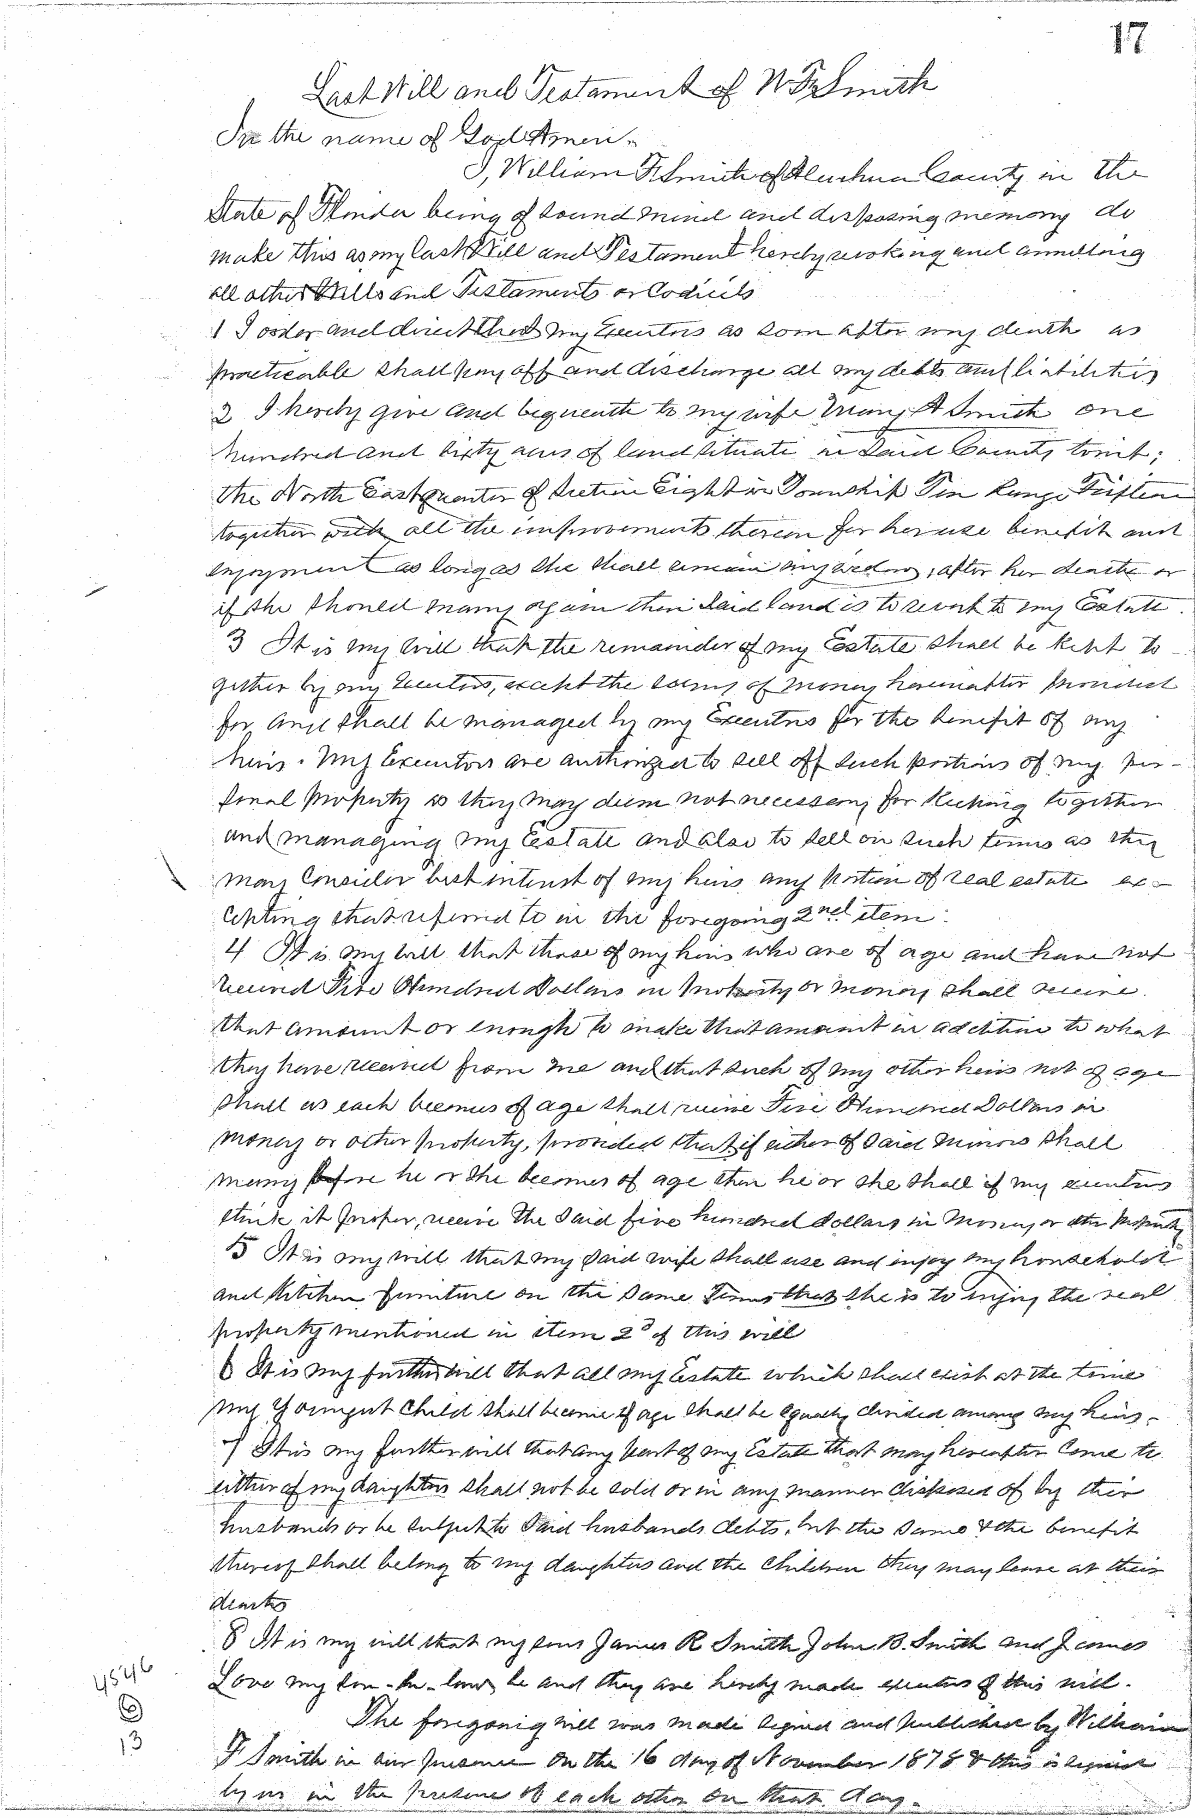 17
Last Will and Testament of W F Smith
In the name of God Amen.
I, William F. Smith of Alachua County in the
State of Florida being of sound mind and disposing memory do
make this as my last Will and Testament hereby revoking and annulling
all other Wills and Testaments or Codicils
1 I order and direct that my Executors as soon after my death as
practicable shall pay off and discharge all my debts and liabilities
2 I hereby give and bequeath to my wife Mary A Smith one
hundred and sixty acres of land situate in said County towit;
the North East quarter of Section Eight in Township Ten Range Fifteen
together with all the improvements thereon for her use benefit and
enjoyment as long as she shall remain my widow, after her death or
if she should marry again then said land is to revert to my Estate.
3 It is my will that the remainder of my Estate shall be kept to-
gether by my Executors, except the sums of money hereinafter provided
for and shall be managed by my Executors for the benefit of my
heirs. My Executors are authorized to sell off such portions of my per-
sonal property as they may deem not necessary for keeping together
and managing my Estate and also to sell on such terms as they
may consider best interest of my heirs any portion of real estate ex-
cepting that referred to in the foregoing 2nd item.
4 It is my will that those of my heirs who are of age and have not
received Five Hundred Dollars in property or money shall receive
that amount or enough to make that amount in addition to what
they have received from me and that such of my other heirs not of age
shall as each becomes of age shall receive Five Hundred Dollars in
money or other property, provided that if either of said minors shall
marry before he or she becomes of age then he or she shall if my executors
think it proper, receive the said five hundred dollars in money or other property
5 It is my will that my said wife shall use and enjoy my household
and kitchen furniture on the same terms that she is to enjoy the real
property mentioned in item 2d of this will
6 It is my further will that all my Estate which shall exist at the time
my youngest child shall become of age shall be equally divided among my heirs.
7 It is my further will that any part of my Estate that may hereafter come to
either of my daughters shall not be sold or in any manner disposed of by their
husbands or be subject to said husbands debts, but the same & the benefit
thereof shall belong to my daughters and the children they may leave at their
deaths
8 It is my will that my sons James R Smith John B. Smith and James
Love my son-in-law, he and they are hereby made executors of this will.
The foregoing will was made signed and published by William
F Smith in our presence on the 16 day of November 1878 & this is signed
by us in the presence of each other on that day.
4546
6
13